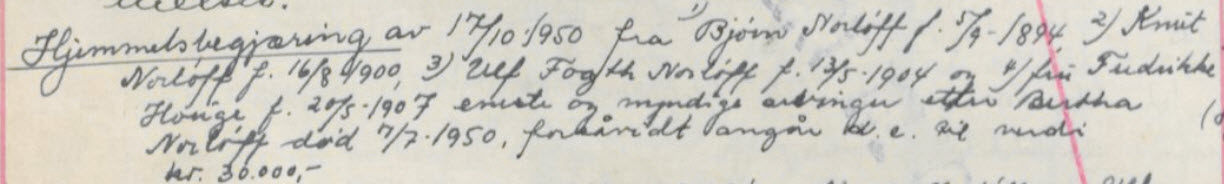 Hjemmelsbegjæring av 17/10-1950 fra 1) Bjørn Norløff f. 5/9-1894, 2) Knut
Norløff f. 16/8 1900, 3) Ulf Fogth Norløff f. 13/5-1904 og 4) fru Fredrikke
Houge f. 20/5-1907 eneste og myndige arvinger etter Bertha
Norløff død 7/7-1950, forsåvidt angår d.e. til verdi
kr. 30.000,-